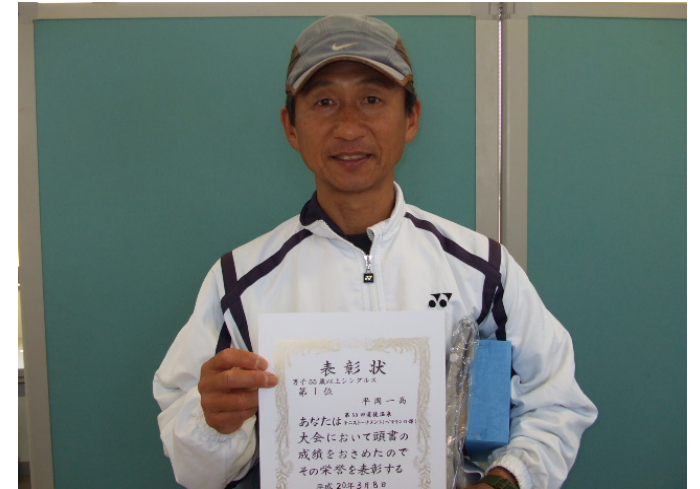 表彰状
男子55歳以上シングルス
第1位
あなたは
大会において頭書の
成績をおさめたので
その栄誉を表彰する
平成20年3月8日